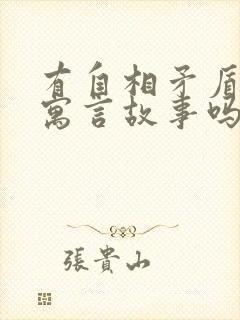 有自相矛盾
寓言故事吗
張貴山